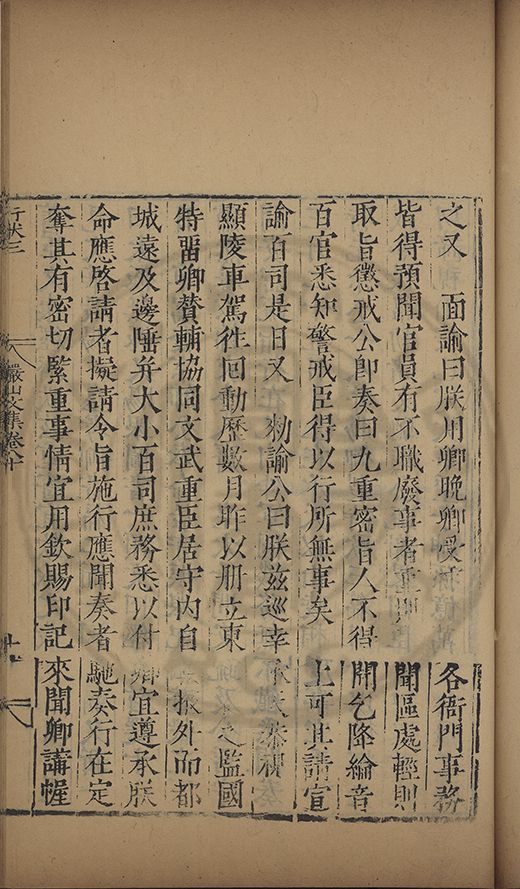 之又　面諭曰朕用卿晚卿受　　　各衙門事務
皆得預聞官員有不職廢事者重則　聞區處輕則
取旨懲戒公卽奏曰九重密旨人不得聞乞降綸音
百官悉知警戒臣得以行所無事矣　上可其請宣
諭百司是日又　勑諭公曰朕兹巡幸承天恭視
顯陵車駕徃囘動歷數月昨以册立東　　之監國
特畱卿賛輔協同文武重臣居守内自　掖外而都
城遠及邊陲并大小百司庶務悉以付卿宜遵承朕
命應啓請者擬請令旨施行應聞奏者馳奏行在定
奪其有密切緊重事情宜用欽賜印記來聞卿講幄
行狀三　嚴　文集卷　十